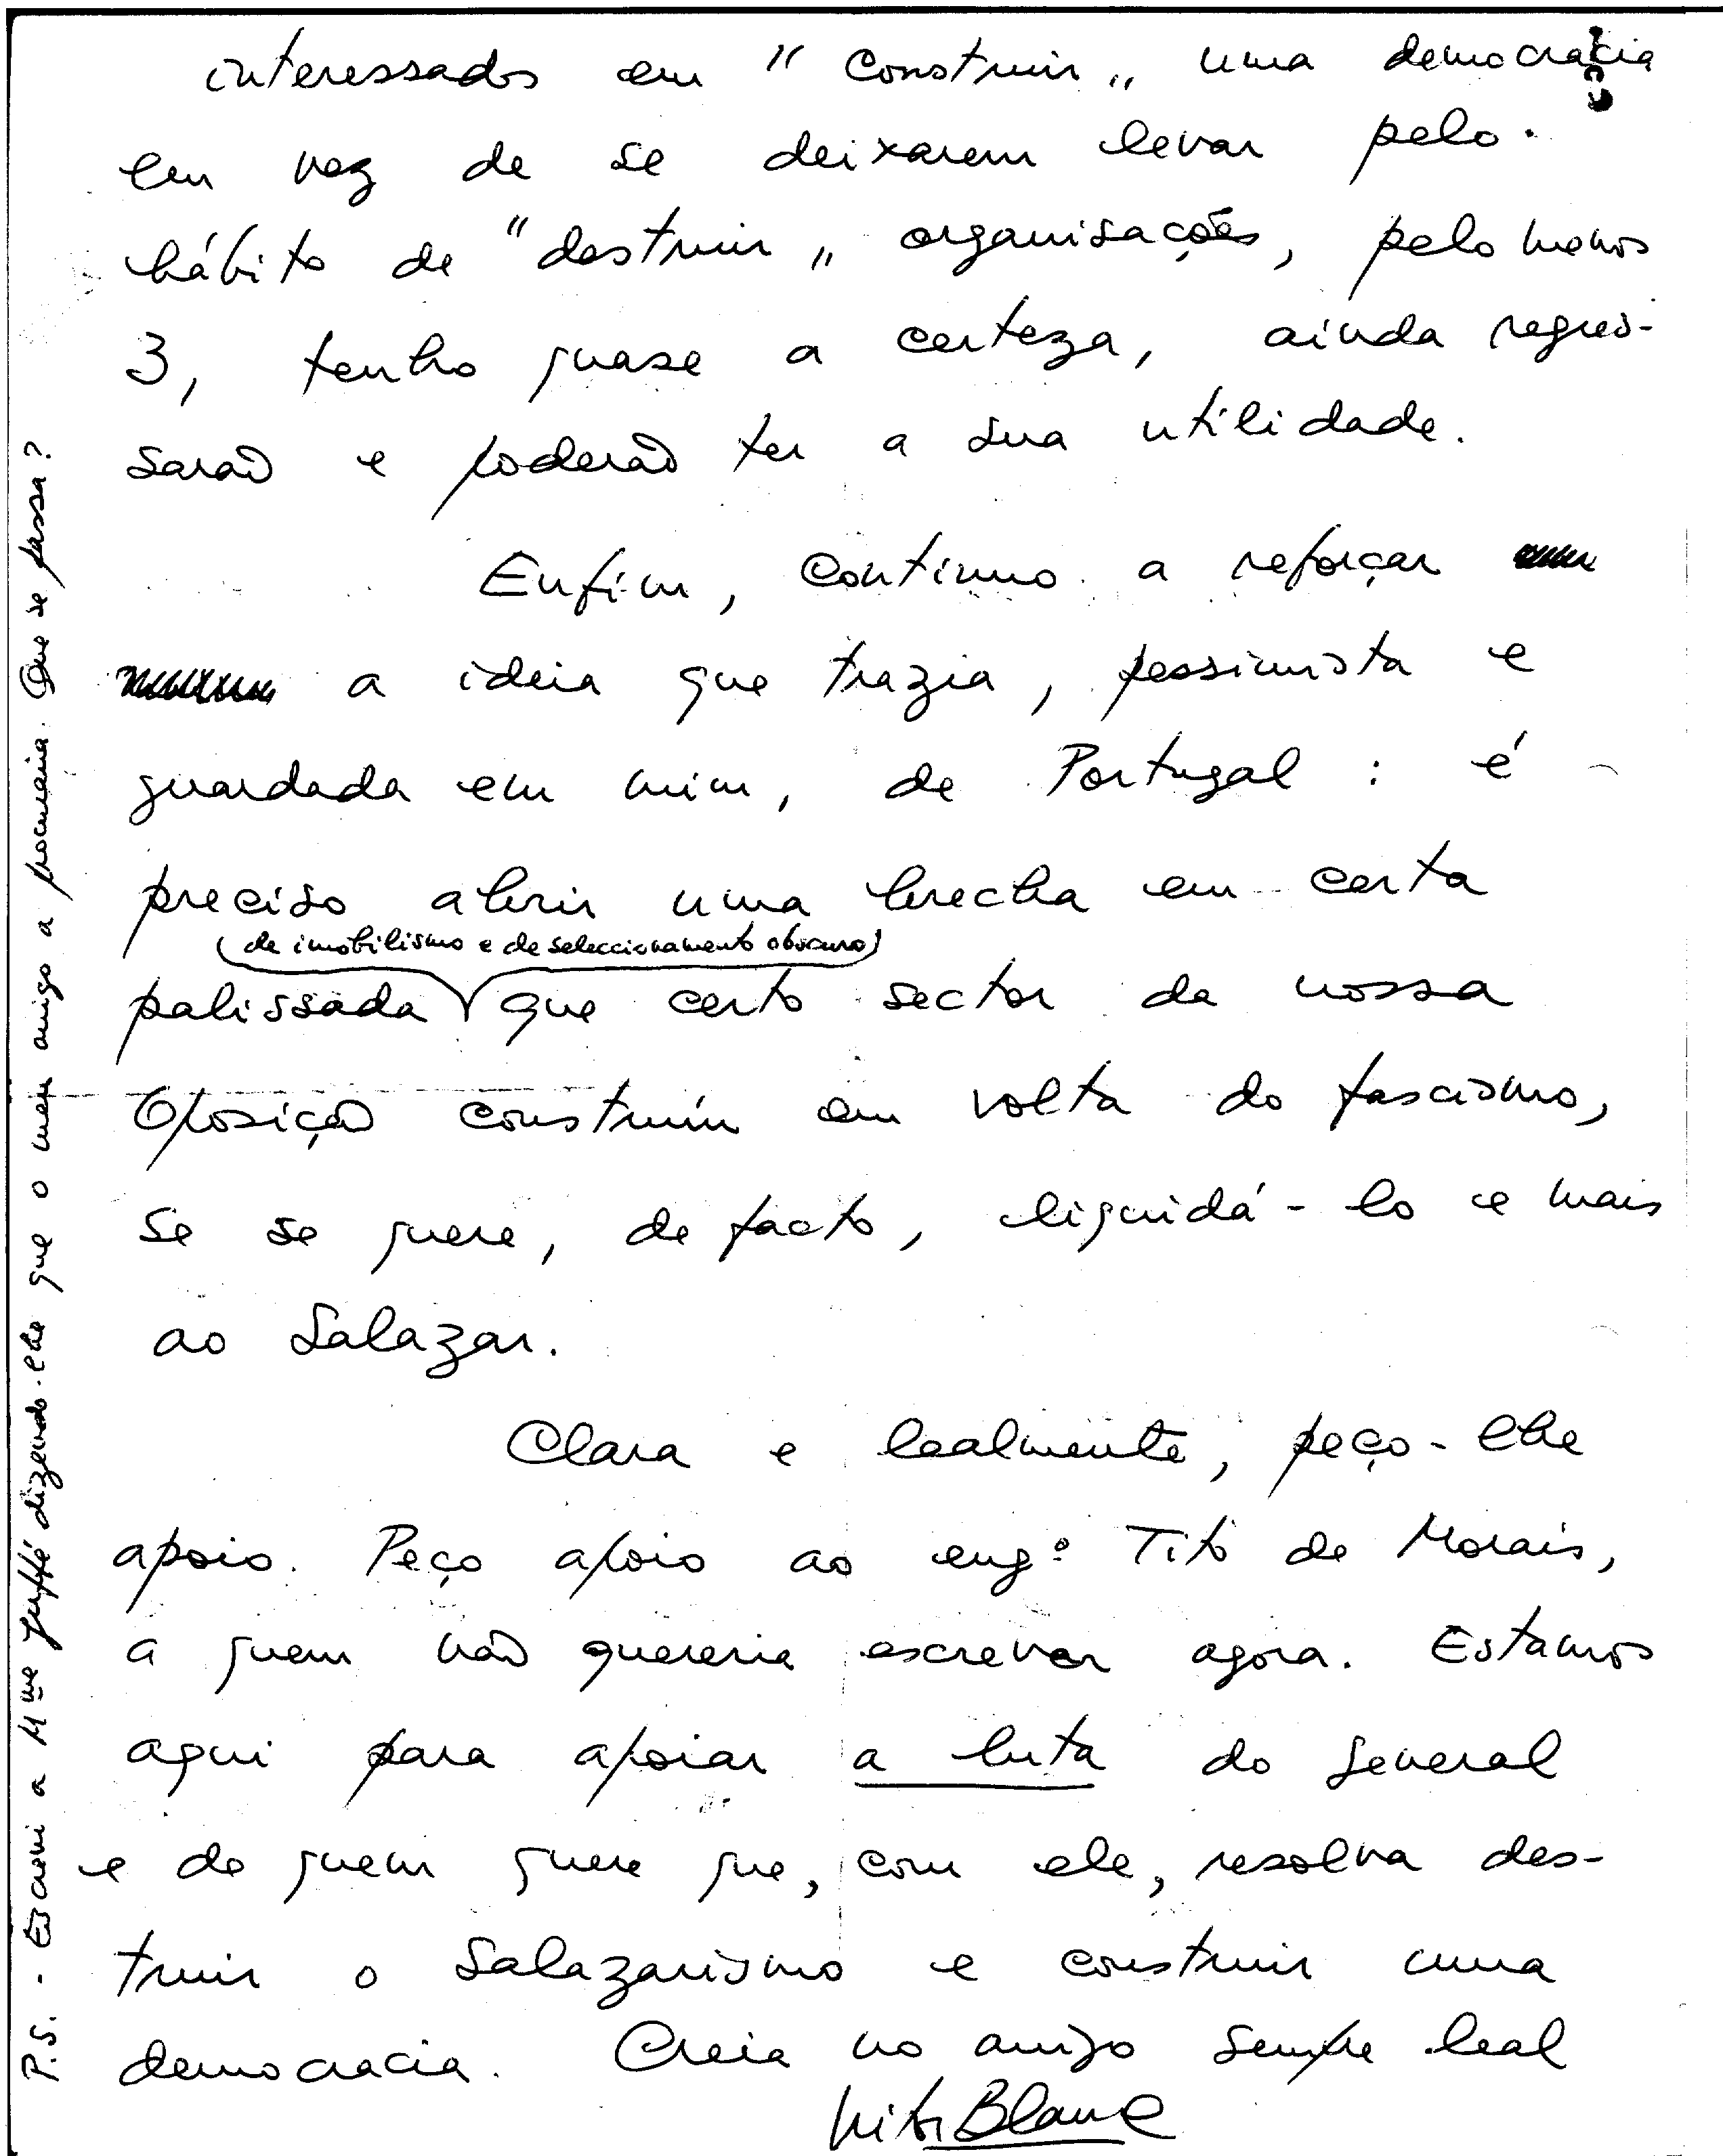 interessados em "construir" uma democracia
em vez de se deixarem levar pelo
hábito de "destruir" organisações, pelo menos
3, tenho quase a certeza, ainda regres-
sarão e poderão ter a sua utilidade.
Enfim, continuo a reforçar
a ideia que trazia, pessimista e
guardada em mim, de Portugal : é
preciso abrir uma brecha em certa
(de imobilismo e de seleccionamento obscuro)
palissada que certo sector da nossa
Oposição construíu em volta do fascismo,
se se quere, de facto, liquidá-lo e mais
ao Salazar.
Clara e lealmente, peço-lhe
apoio. Peço apoio ao engº Tito de Morais,
a quem não quereria escrever agora. Estamos
aqui para apoiar a luta do General
e de quem quere que, com ele, resolva des-
truir o Salazarismo e construir uma
democracia. Creia no amigo sempre leal
P.S. - Escrevi a Mme dizendo-lhe que o meu amigo a procuraria. Que se passa?